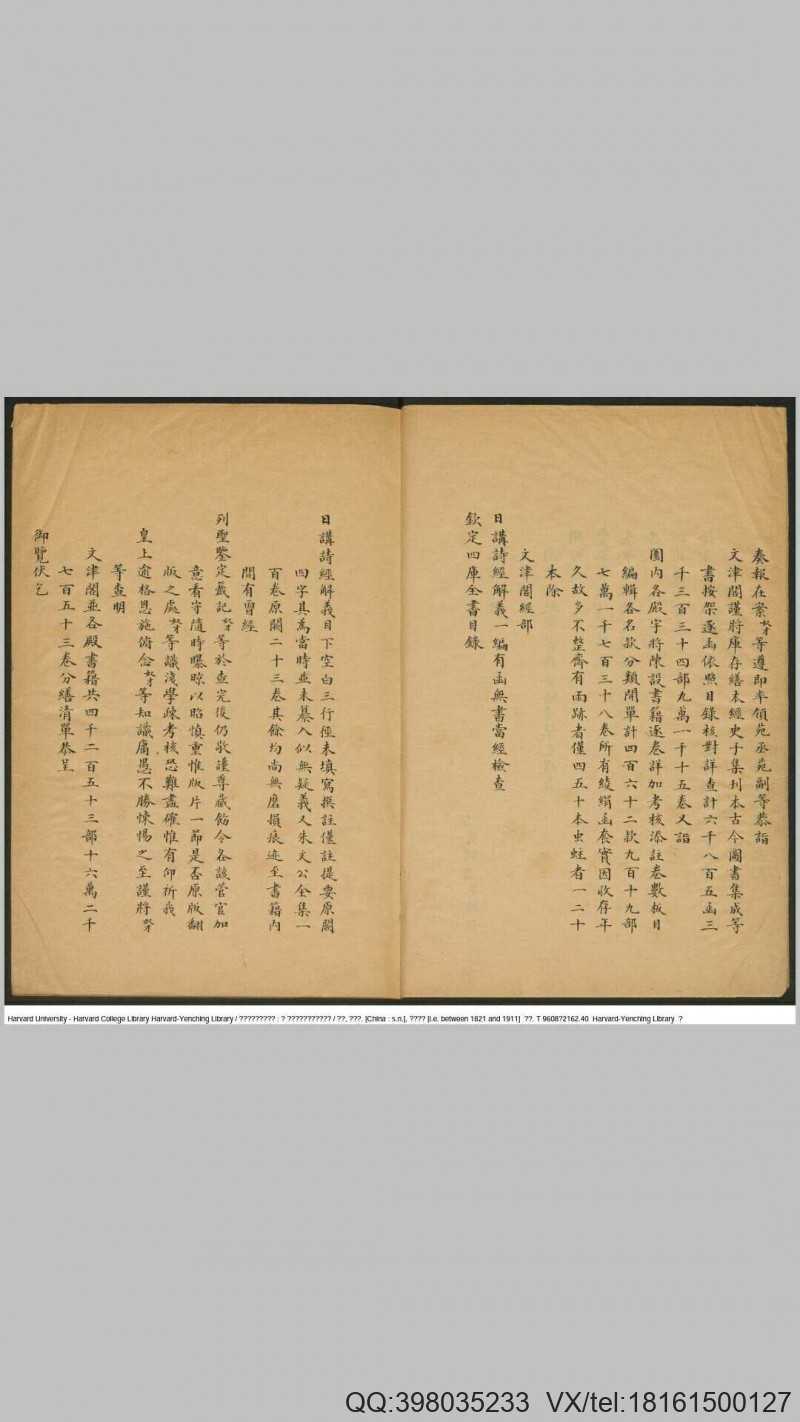 奏報在案奴才等遵即率領苑丞苑副等恭詣
文津閣謹將庫存繕本經史子集刊本古今圖書集成等
書按架逐函依照目錄核對詳查計六千八百五函三
千三百三十四部九萬一千十五卷又詣
園內各殿宇將陳設書籍逐卷詳加考核添註卷數板目
編輯各名款分類開單計四百六十二款九百十九部
七萬一千七百三十八卷所有綾絹函套實因收存年
久故多不整齊有雨跡者僅四五十本虫蛀者一二十
本除
文津閣經部
日講詩經解義一編有函無書當經檢查
欽定四庫全書目錄
日講詩經解義目下空白三行俓未填寫撰註僅註提要原闕
四字其為當時並未纂入似無疑義又朱文公全集一
百卷原闕二十三卷其餘均尚無磨損痕迹至書籍內
間有曾經
列聖鑒定截記奴才等於查完後仍敬謹尊藏飭令各該管官加
意看守隨時曝晾以昭慎重惟版片一節是否原版翻
版之處奴才等識淺學疎考核恐難盡確惟有仰祈我
皇上逾格恩施俯念奴才等知識庸愚不勝悚惕之至謹將奴才
等查明
文津閣並各殿書籍共四千二百五十三部十六萬二千
七百五十三卷分繕清單恭呈
御覽伏乞
Harvard University - Harvard College Library Harvard-Yenching Library / ????????? : ? ??????????? / ??, ???. [China : s.n.], ???? [i.e. between 1821 and 1911] .??. T 9608?2162.40 Harvard-Yenching Library .?
QQ:398035233 VX/tel:18161500127